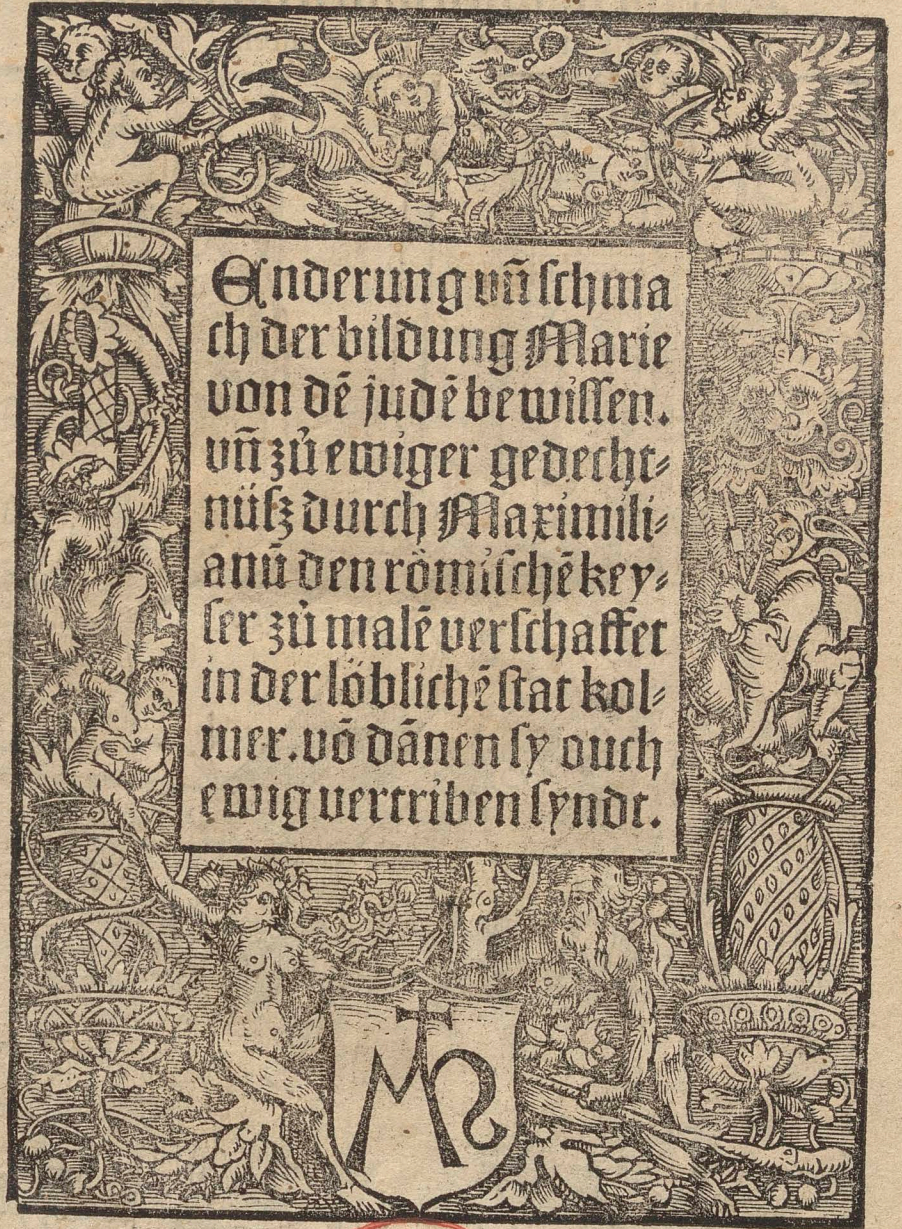 Enderung vn̄ ſchma
ch der bildung Marie
von dē judē bewiſſen.
vn̄ zů ewiger gedecht⸗
nüſz durch Maximili⸗
anū den römiſchē key⸗
ſer zů malē verſchaffet
in der löblichē ſtat kol⸗
mer. vō dānen ſy ouch
ewig vertriben ſyndt.
MS